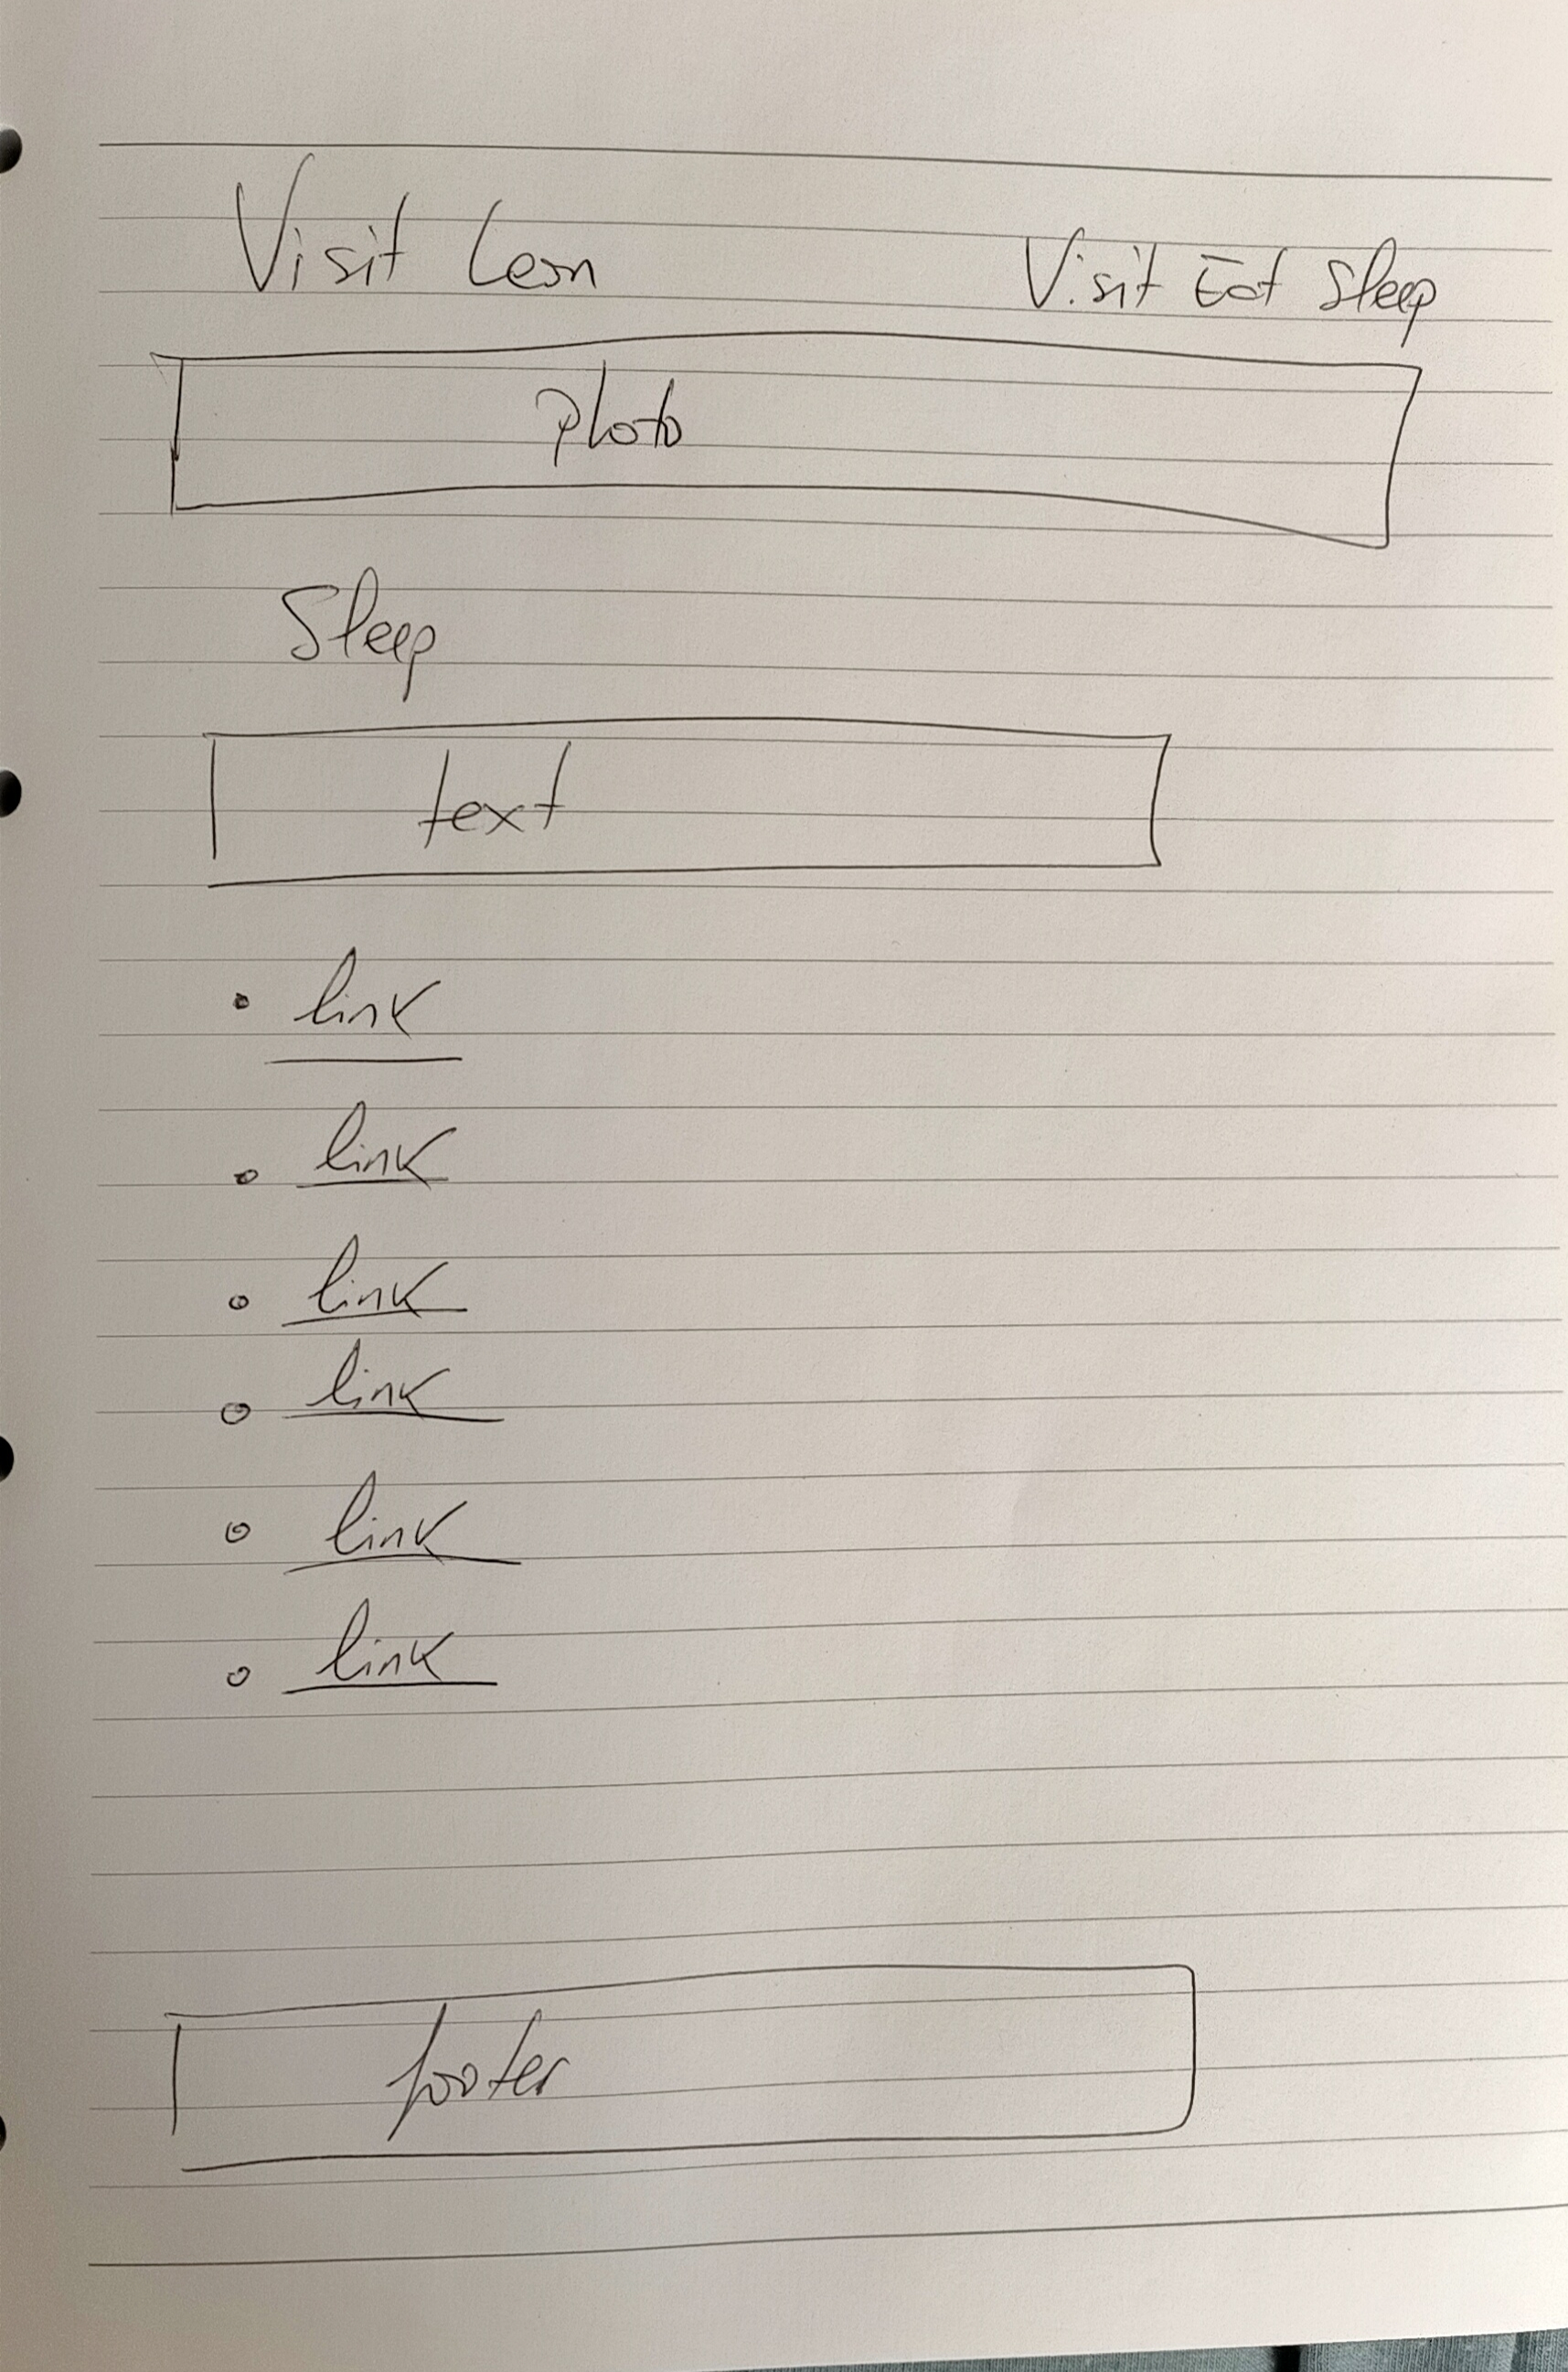 Visit Leon
Visit Eat Sleep
photo
Sleep
text
link
link
link
link
link
link
footer